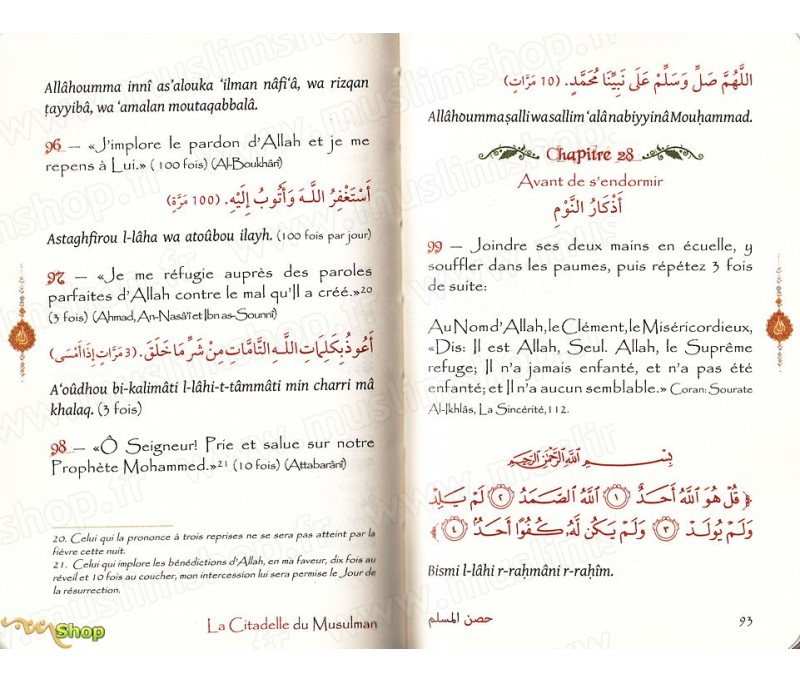 Allâhoumma innî as'alouka 'ilman nâfi'â, wa rizqan
ṭayyibâ, wa 'amalan moutaqabbalâ.
96 – «J'implore le pardon d'Allah et je me
repens à Lui.» (100 fois) (Al-Boukhârî)
أَسْتَغْفِرُ اللَّـهَ وَأَتُوبُ إِلَيْهِ. (100 مَرَّةٍ)
Astaghfirou l-lâha wa atoûbou ilayh. (100 fois par jour)
97 – «Je me réfugie auprès des paroles
parfaites d'Allah contre le mal qu'Il a créé.»20
(3 fois) (Ahmad, An-Nasâ'î et Ibn as-Sounnî)
أَعُوذُ بِكَلِمَاتِ اللَّـهِ التَّامَّاتِ مِنْ شَرِّ مَا خَلَقَ. (3 مَرَّاتٍ إِذَا أَمْسَى)
A'oûdhou bi-kalimâti l-lâhi-t-tâmmâti min charri mâ
khalaq. (3 fois)
98 – «Ô Seigneur! Prie et salue sur notre
Prophète Mohammed.»21 (10 fois) (Attabarânî)
20. Celui qui la prononce à trois reprises ne se sera pas atteint par la
fièvre cette nuit.
21. Celui qui implore les bénédictions d'Allah, en ma faveur, dix fois au
réveil et 10 fois au coucher, mon intercession lui sera permise le Jour de
la résurrection.
La Citadelle du Musulman
Shop
اللَّهُمَّ صَلِّ وَسَلِّمْ عَلَى نَبِيِّنَا مُحَمَّدٍ. (10 مَرَّاتٍ)
Allâhoumma ṣalli wa sallim 'alâ nabiyyinâ Mouḥammad.
Chapitre 28
Avant de s'endormir
أَذْكَارُ النَّوْمِ
99 – Joindre ses deux mains en écuelle, y
souffler dans les paumes, puis répétez 3 fois
de suite:
Au Nom d'Allah, le Clément, le Miséricordieux,
«Dis: Il est Allah, Seul. Allah, le Suprême
refuge; Il n'a jamais enfanté, et n'a pas été
enfanté; et Il n'a aucun semblable.» Coran: Sourate
Al-Ikhlâs, La Sincérité, 112.
بِسْمِ اللَّهِ الرَّحْمَٰنِ الرَّحِيمِ
﴿ قُلْ هُوَ اللَّهُ أَحَدٌ ﴿١﴾ اللَّهُ الصَّمَدُ ﴿٢﴾ لَمْ يَلِدْ
وَلَمْ يُولَدْ ﴿٣﴾ وَلَمْ يَكُن لَّهُ كُفُوًا أَحَدٌ ﴿٤﴾ ﴾
Bismi l-lâhi r-raḥmâni r-raḥîm.
حصن المسلم
93
www.muslimshop.fr